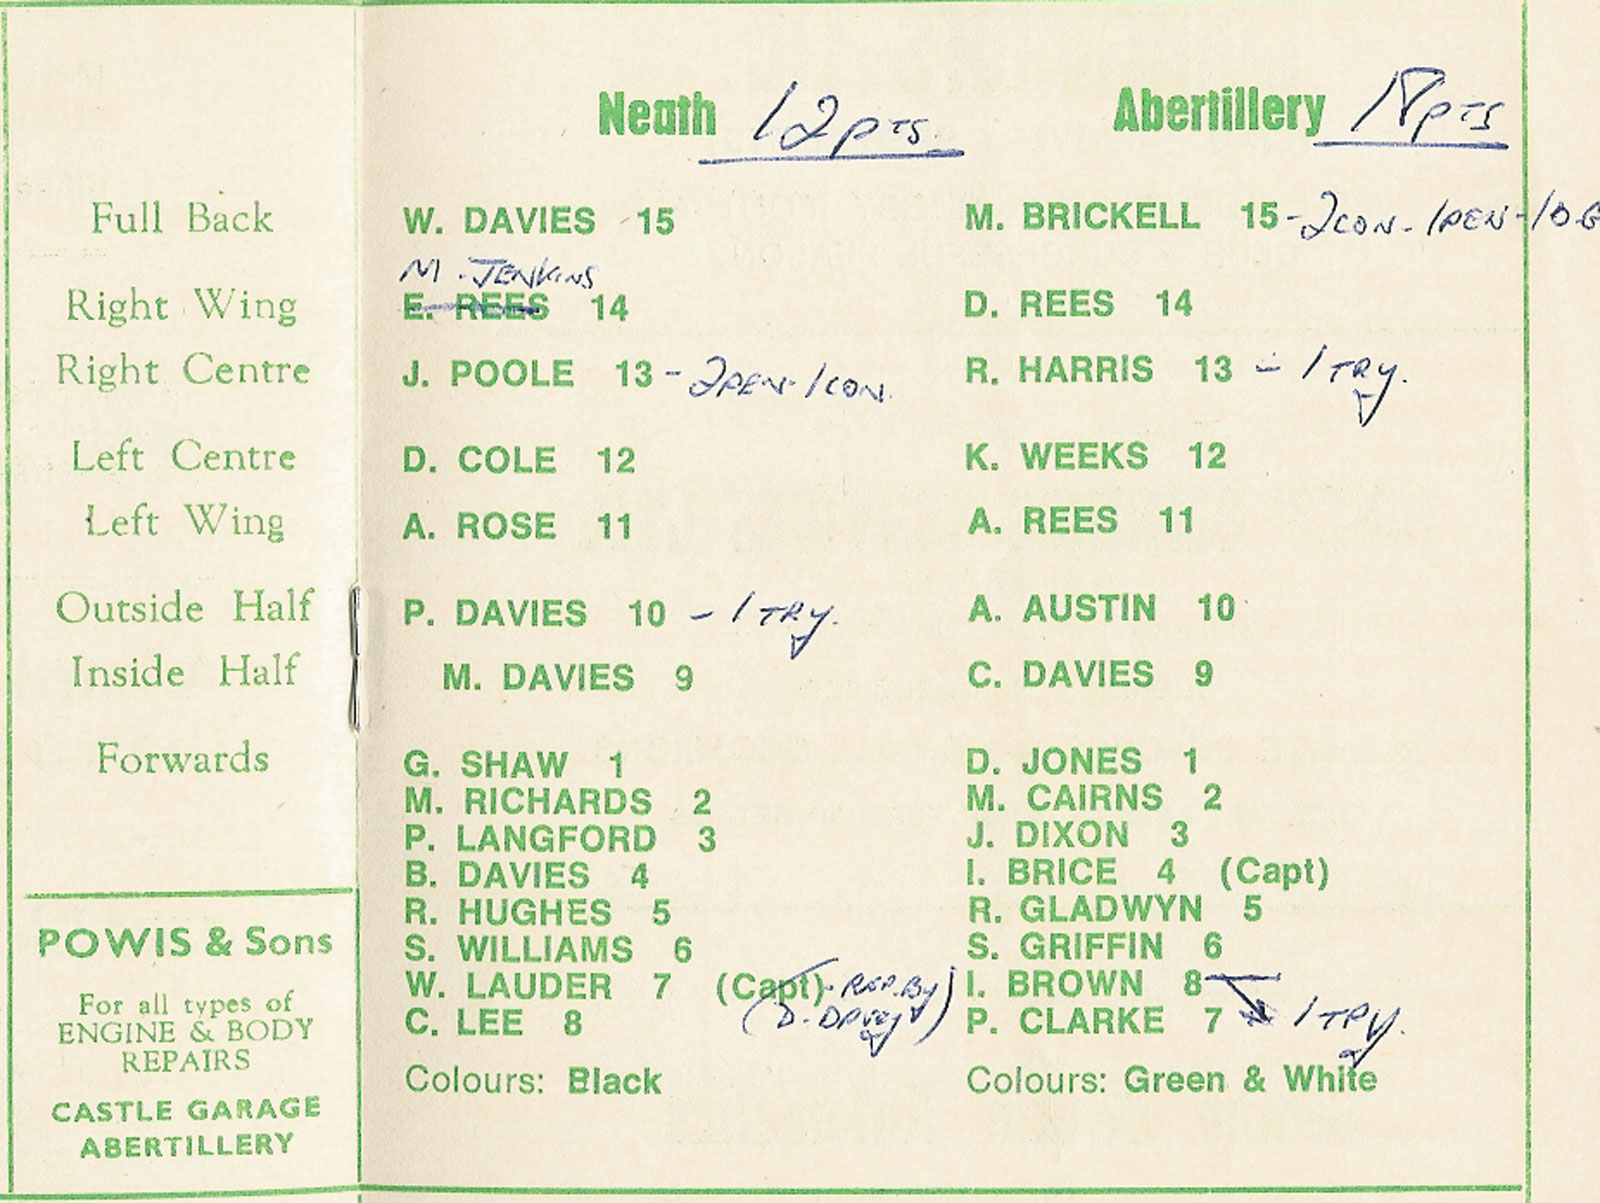 Neath 12 pts. Abertillery 18 pts
Full Back W. DAVIES 15 M. BRICKELL 15 - 2 CON - 1 PEN - 1 D.G
M. JENKINS
Right Wing E. REES 14 D. REES 14
Right Centre J. POOLE 13 - 2 PEN - 1 CON. R. HARRIS 13 - 1 TRY.
Left Centre D. COLE 12 K. WEEKS 12
Left Wing A. ROSE 11 A. REES 11
Outside Half P. DAVIES 10 - 1 TRY. A. AUSTIN 10
Inside Half M. DAVIES 9 C. DAVIES 9
Forwards G. SHAW 1 D. JONES 1
M. RICHARDS 2 M. CAIRNS 2
P. LANGFORD 3 J. DIXON 3
B. DAVIES 4 I. BRICE 4 (Capt)
R. HUGHES 5 R. GLADWYN 5
S. WILLIAMS 6 S. GRIFFIN 6
W. LAUDER 7 (Capt) - REP. By I. BROWN 8
C. LEE 8 (D. DAVEY) P. CLARKE 7 1 TRY.
Colours: Black Colours: Green & White
POWIS & Sons
For all types of
ENGINE & BODY
REPAIRS
CASTLE GARAGE
ABERTILLERY